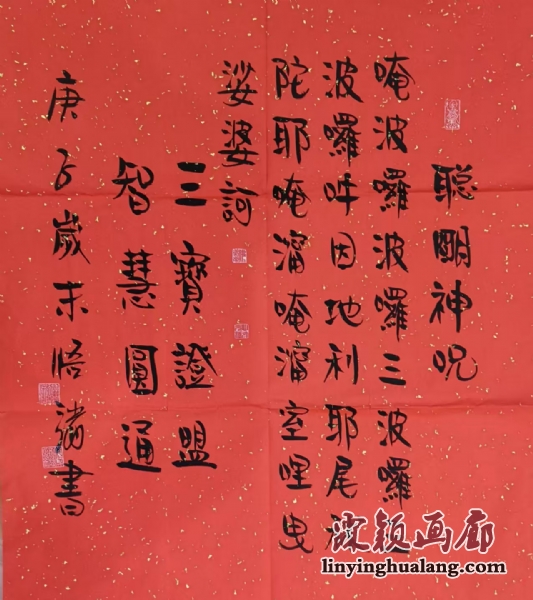 聪明神咒
唵波囉波囉三波囉
波囉吽因地利耶尾
陀耶唵溜唵溜室哩曳
娑婆訶
三寶證盟
智慧圓通
庚子歲末悟 書
林颖画廊
linyinghualang.com